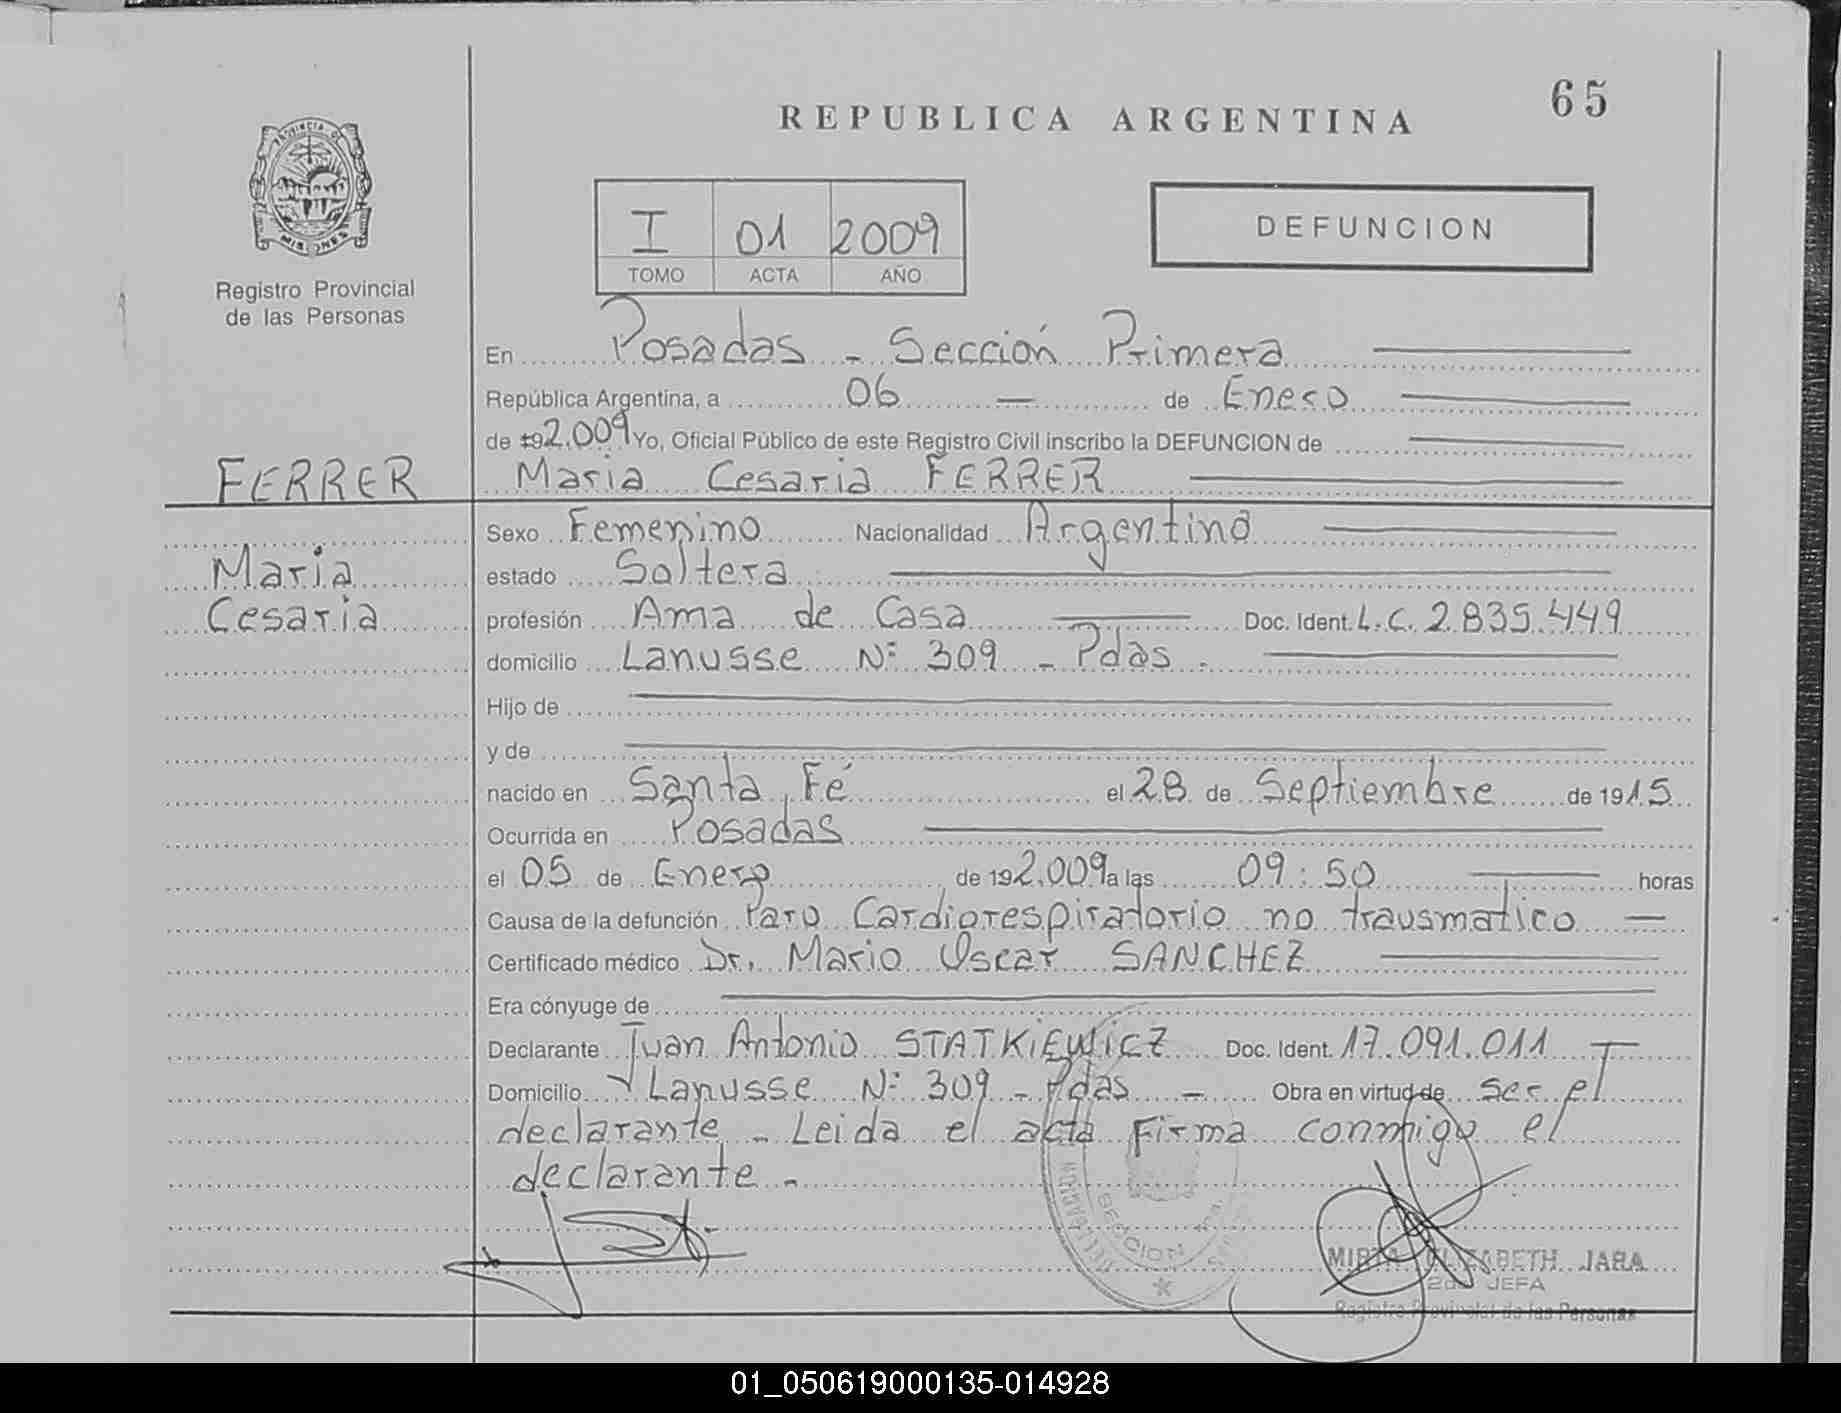 REPUBLICA ARGENTINA
65
PROVINCIA DE
MISIONES
Registro Provincial
de las Personas
I 01 2009
TOMO ACTA AÑO
DEFUNCION
En Posadas - Sección Primera
República Argentina, a 06 — de Enero
de 19 2.009 Yo, Oficial Público de este Registro Civil inscribo la DEFUNCION de
FERRER
Maria Cesaria FERRER
Maria
Cesaria
Sexo Femenino Nacionalidad Argentina
estado Soltera
profesión Ama de Casa Doc. Ident. L.C. 2.835.449
domicilio Lanusse Nº 309 - Pdas.
Hijo de
y de
nacido en Santa Fé el 28 de Septiembre de 1915
Ocurrida en Posadas
el 05 de Enero de 19 2.009 a las 09:50 horas
Causa de la defunción Paro Cardiorespiratorio no trausmatico —
Certificado médico Dr. Mario Oscar SANCHEZ
Era cónyuge de
Declarante Juan Antonio STATKiEWiCZ Doc. Ident. 17.091.011
Domicilio Lanusse Nº 309 - Pdas - Obra en virtud de ser el
declarante - Leida el acta Firma conmigo el
declarante -
SECCION
MIRTA ELIZABETH JARA
2da JEFA
Registro Provincial de las Personas
01_050619000135-014928